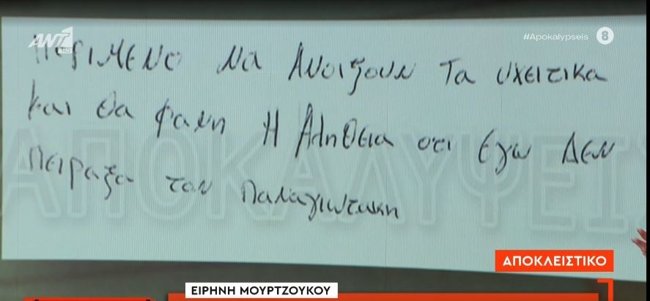 ΑΝΤ1
#Apokalypseis 8
Περιμενο να Ανοιξουν Τα ηχειτικα
και θα φανη Η Αληθεια οτι εγω ΔΕΝ
πειραξα τον Παναγιωτακη
ΑΠΟΚΑΛΥΨΕΙΣ
ΑΠΟΚΛΕΙΣΤΙΚΟ
ΕΙΡΗΝΗ ΜΟΥΡΤΖΟΥΚΟΥ